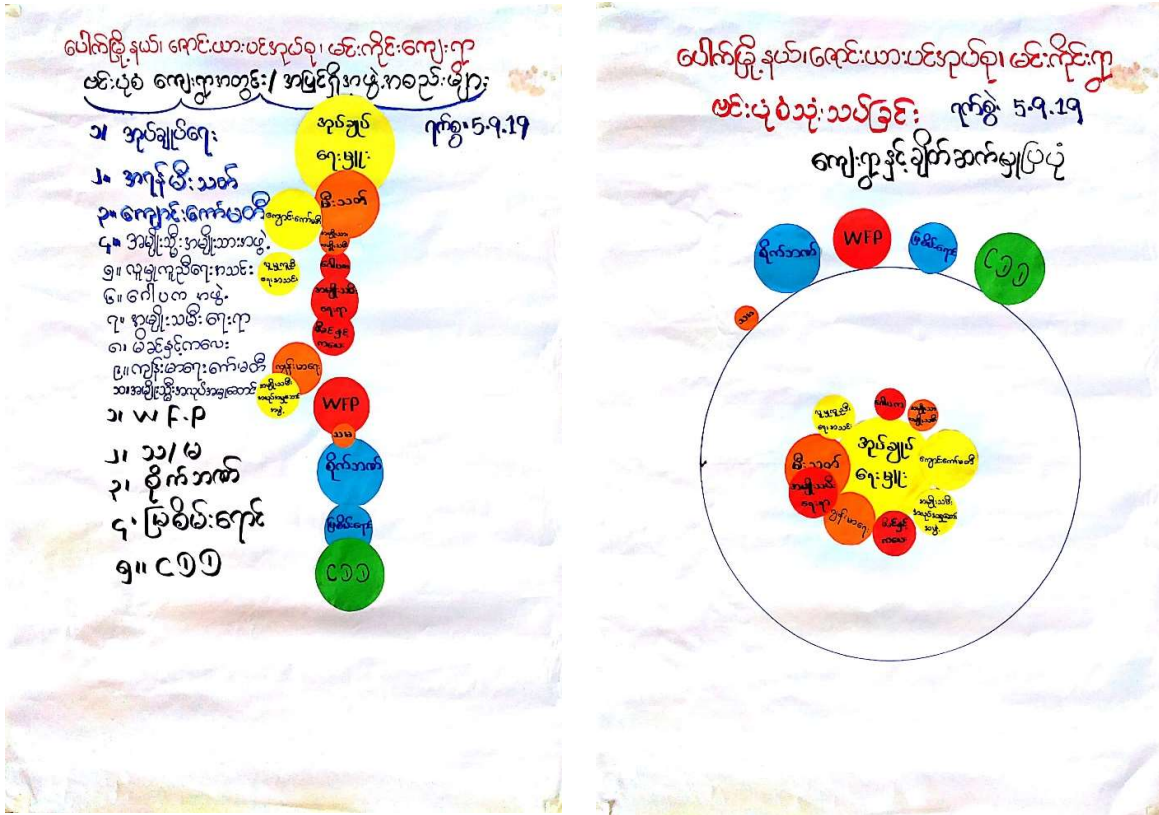 ပေါက်မြို့နယ်၊ ဇောင်းယားပင်အုပ်စု၊ မင်းကိုင်းကျေးရွာ
ဗင်းပုံစံ ကျေးရွာအတွင်း/အပြင်ရှိအဖွဲ့အစည်းများ
ရက်စွဲ၊ 5.9.19
၁။ အုပ်ချုပ်ရေး
၂။ အရန်မီးသတ်
၃။ ကျောင်းကော်မတီ
၄။ အမျိုးသ္မီးအမျိုးသားအဖွဲ့
၅။ လူမှုကူညီရေးအသင်း
၆။ ဂေါပကအဖွဲ့
၇။ အမျိုးသမီးရေးရာ
၈။ မိခင်နှင့်ကလေး
၉။ ကျန်းမာရေးကော်မတီ
၁၀။ အမျိုးသ္မီးအလုပ်အမှုဆောင်
၁။ W F.P
၂။ သ/မ
၃။ စိုက်ဘဏ်
၄။ မြစိမ်းရောင်
၅။ CDD
အုပ်ချုပ်
ရေးမှူး
မီးသတ်
ကျောင်းကော်မတီ
လူမှုကူညီ
ရေးအသင်း
ဂေါပက
အမျိုးသမီး
ရေးရာ
မိခင်နှင့်
ကလေး
ကျန်းမာရေး
အမျိုးသမီး
အလုပ်အမှုဆောင်
အဖွဲ့
WFP
သမ
စိုက်ဘဏ်
မြစိမ်းရောင်
CDD
ပေါက်မြို့နယ်၊ ဇောင်းယားပင်အုပ်စု၊ မင်းကိုင်းရွာ
ဗင်းပုံစံသုံးသပ်ခြင်း ရက်စွဲ 5.9.19
ကျေးရွာနှင့်ချိတ်ဆက်မှုပြပုံ
စိုက်ဘဏ်
WFP
မြစိမ်းရောင်
CDD
သမ
လူမှုကူညီ
ရေးအသင်း
ဂေါပက
အုပ်ချုပ်
ရေးမှူး
ကျောင်းကော်မတီ
မီးသတ်
အမျိုးသမီး
ရေးရာ
ကျန်းမာရေး
မိခင်နှင့်
ကလေး
အမျိုးသမီး
အလုပ်အမှုဆောင်
အဖွဲ့